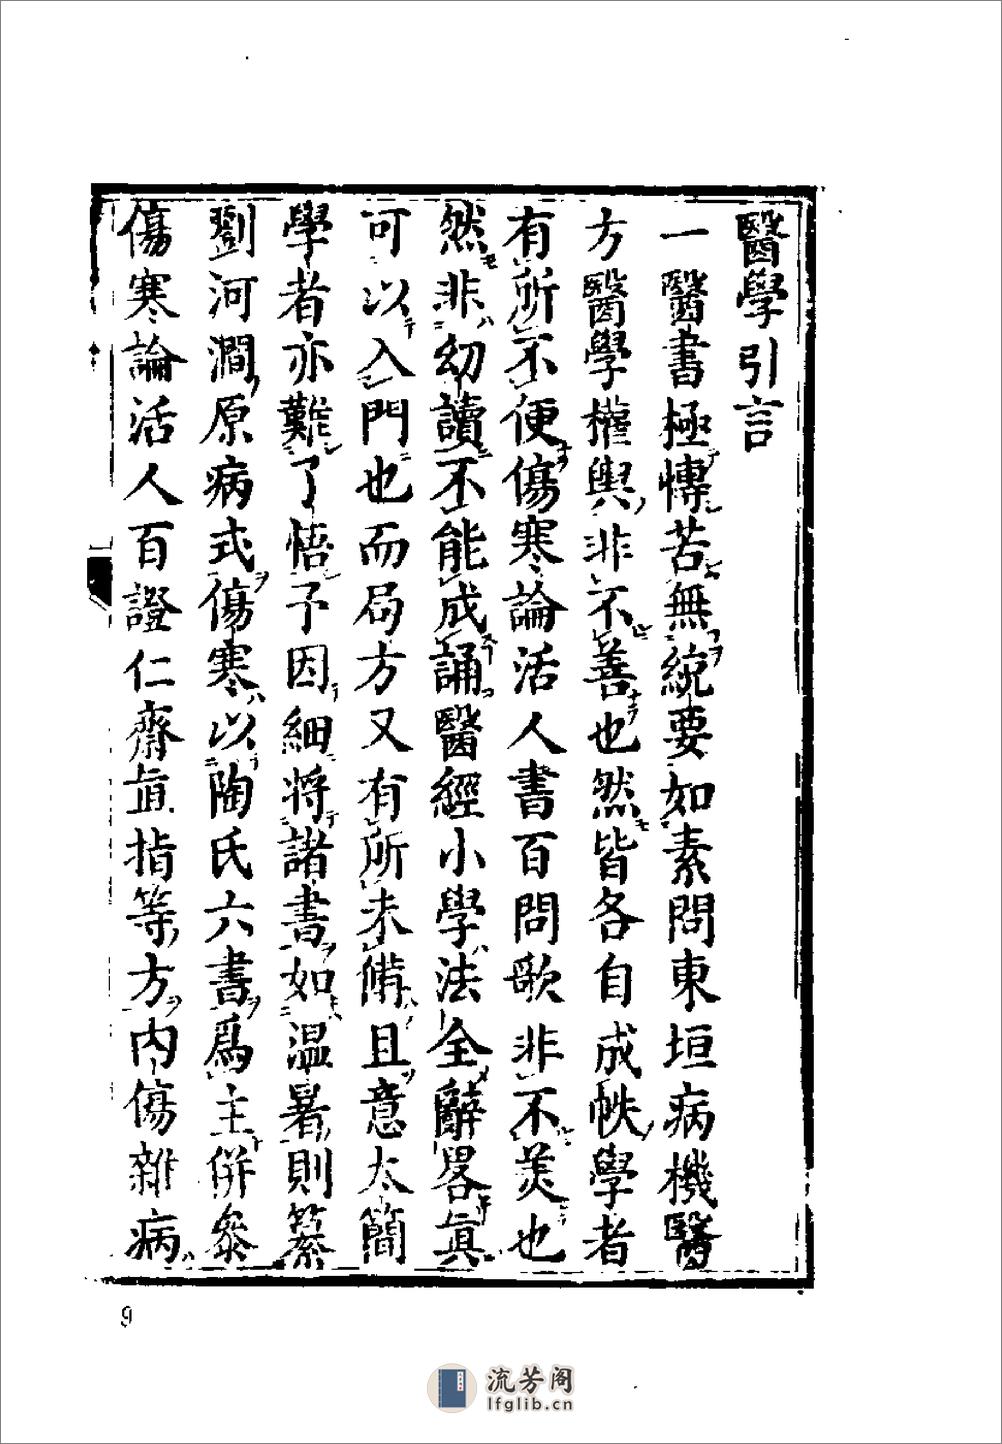 醫學引言
一醫書極慱苦無統要如素問東垣病機醫
方醫學權輿非不善也然皆各自成帙學者
有所不便傷寒論活人書百問歌非不美也
然非幼讀不能成誦醫經小學法全辭畧眞
可以入門也而局方又有所未備且意太簡
學者亦難了悟予因細將諸書如温暑則纂
劉河澗原病式傷寒以陶氏六書爲主併叅
傷寒論活人百證仁齋直指等方内傷雜病
9
流芳阁
lfglib.cn